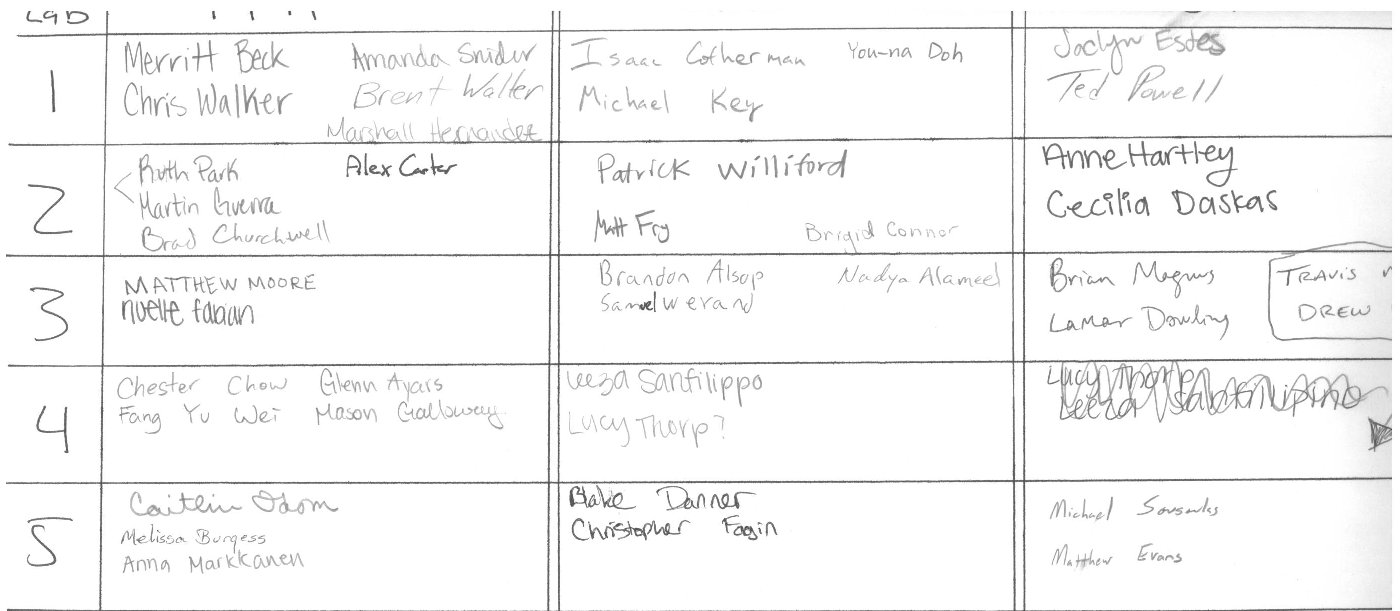 Lab
1
Merritt Beck Amanda Snider
Chris Walker Brent Walter
Marshall Hernandez
Isaac Cotherman You-na Doh
Michael Key
Jaclyn Estes
Ted Powell
2
Ruth Park Alex Carter
Martin Guerra
Brad Churchwell
Patrick Williford
Matt Fry Brigid Connor
Anne Hartley
Cecilia Daskas
3
MATTHEW MOORE
nuelle fabian
Brandon Alsop Nadya Alameel
Samuel Werand
Brian Magnus TRAVIS
Lamar Dowling DREW
4
Chester Chow Glenn Ayars
Fang Yu Wei Mason Galloway
Leeza Sanfilippo
Lucy Thorp?
5
Caitlin Odom
Melissa Burgess
Anna Markkanen
Blake Danner
Christopher Fagin
Michael
Matthew Evans